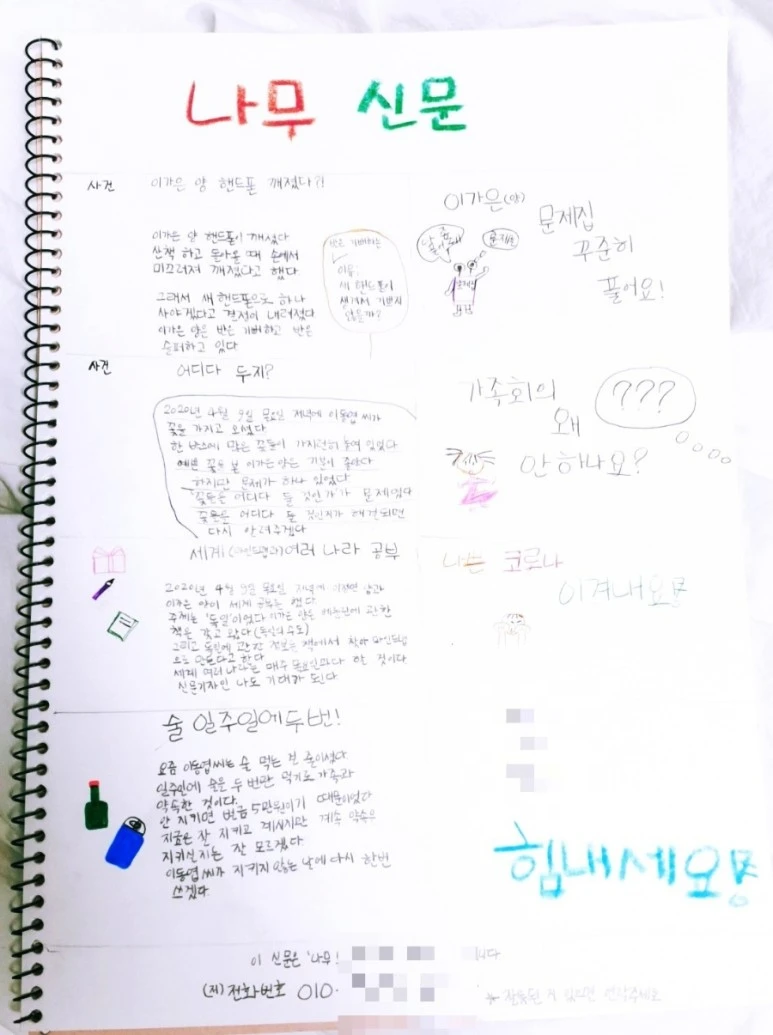 나무 신문
사건 이가은 양 핸드폰 깨졌다?!
이가은 양 핸드폰이 깨졌다
산책 하고 돌아올 때 손에서
미끄러져 깨졌다고 했다
그래서 새 핸드폰으로 하나
사야겠다고 결정이 내려졌다
이가은 양은 반은 기뻐하고 반은
슬퍼하고 있다
이유:
새 핸드폰이
생겨서 기쁘지
않을까?
이가은(양)
문제집
꾸준히
풀어요!
사건 어디다 두지?
2020년 4월 9일 목요일 저녁에 이동엽 씨가
꽃을 가지고 오셨다
한 박스에 많은 꽃들이 가지런히 놓여 있었다
예쁜 꽃을 본 이가은 양은 기분이 좋았다
하지만 문제가 하나 있었다
꽃들을 어디다 둘 것인가가 문제였다
꽃들을 어디다 둘 것인지가 해결되면
다시 알려주겠다
가족회의
왜
안 하나요?
???
세계 여러 나라 공부
2020년 4월 9일 목요일 저녁에
이가은 양이 세계 공부를 했다
주제는 '독일'이었다 이가은 양은 베를린에 관한
책을 갖고 왔다 (독일의 수도)
그리고 독일에 관한 정보를 책에서 찾아 마인드맵
으로 만든다고 한다
세계 여러 나라는 매주 목요일마다 하는 것이다
신문기자인 나도 기대가 된다
나는 코로나
이겨내요!
술 일주일에 두번!
요즘 이동엽씨는 술 먹는 것 줄이셨다
일주일에 술을 두 번만 먹기로 가족과
약속한 것이다.
안 지키면 벌금 5만원이기 때문이었다
지금은 잘 지키고 계시지만 계속 약속을
지키실지는 잘 모르겠다
이동엽씨가 지키지 않는 날에 다시 한번
쓰겠다
힘내세요!
이 신문은 '나무!
니다
(저) 전화번호 010-
잘못된 게 있으면 연락주세요